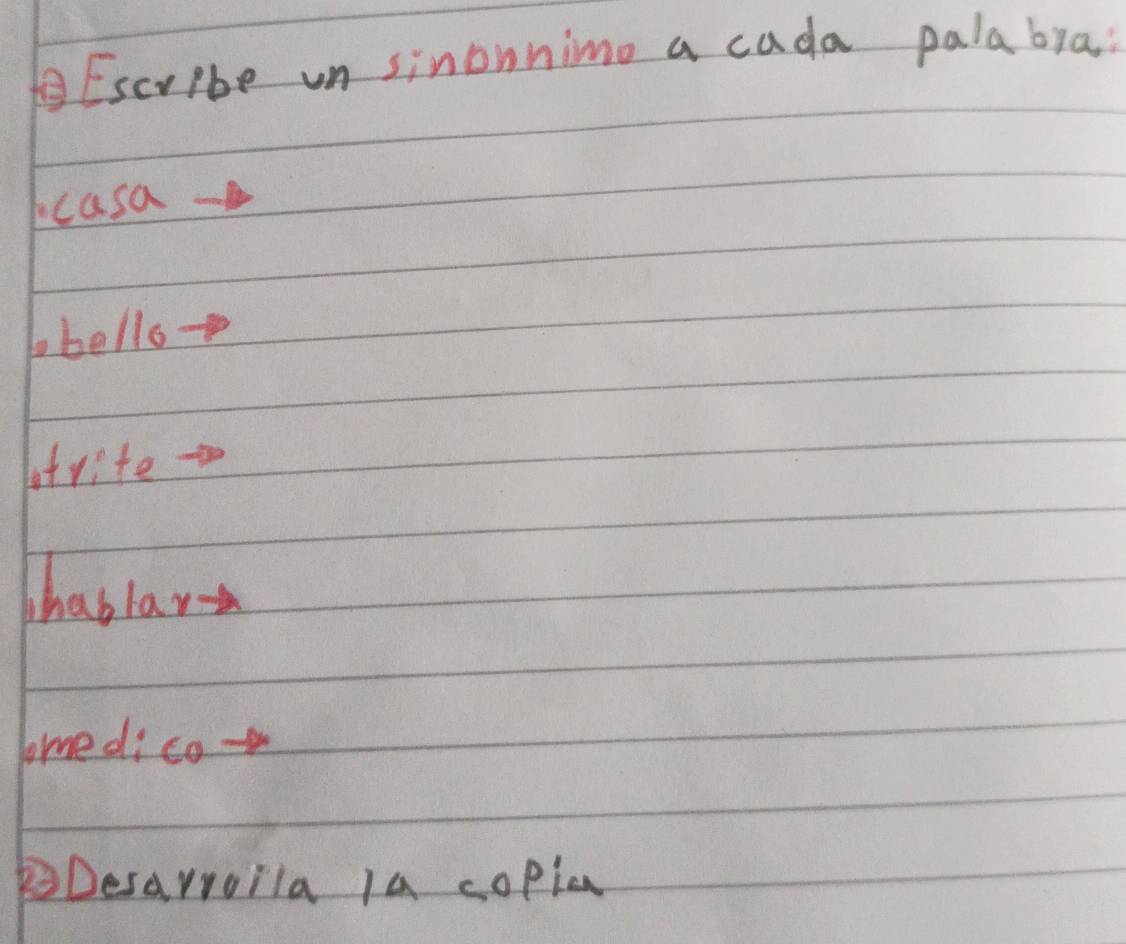 1) Escribe un sinonnimo a cada palabra:
• casa →
• bello →
• trite →
• hablar →
• medico →
2) Desarroila la copia